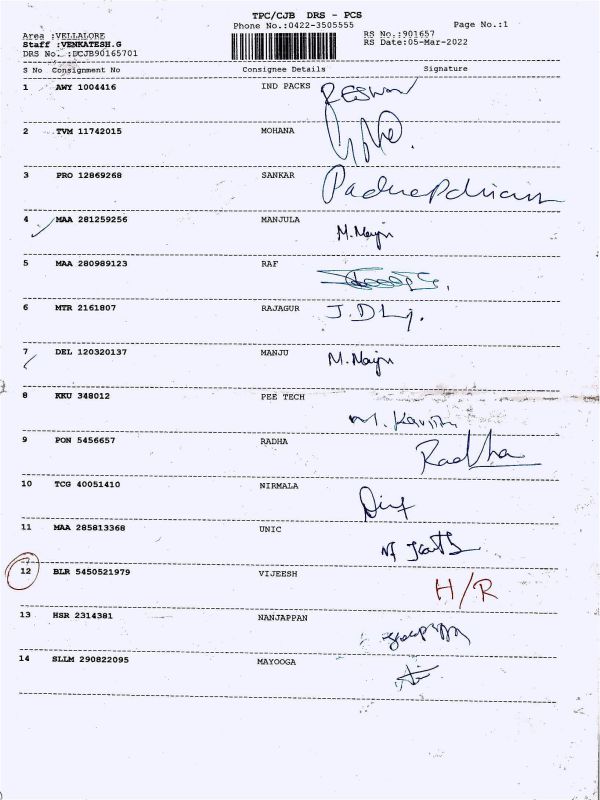 TPC/CJB DRS - PCS
Phone No.:0422-3505555 Page No.:1
Area :VELLALORE RS No.:901657
Staff :VENKATESH.G RS Date:05-Mar-2022
DRS No. :DCJB90165701
S No Consignment No Consignee Details Signature
1 AWY 1004416 IND PACKS
2 TVM 11742015 MOHANA
3 PRO 12869268 SANKAR
4 MAA 281259256 MANJULA
5 MAA 280989123 RAF
6 MTR 2161807 RAJAGUR
7 DEL 120320137 MANJU
8 KKU 348012 PEE TECH
9 PON 5456657 RADHA Radha
10 TCG 40051410 NIRMALA
11 MAA 285813368 UNIC
12 BLR 5450521979 VIJEESH H/R
13 HSR 2314381 NANJAPPAN
14 SLLM 290822095 MAYOOGA